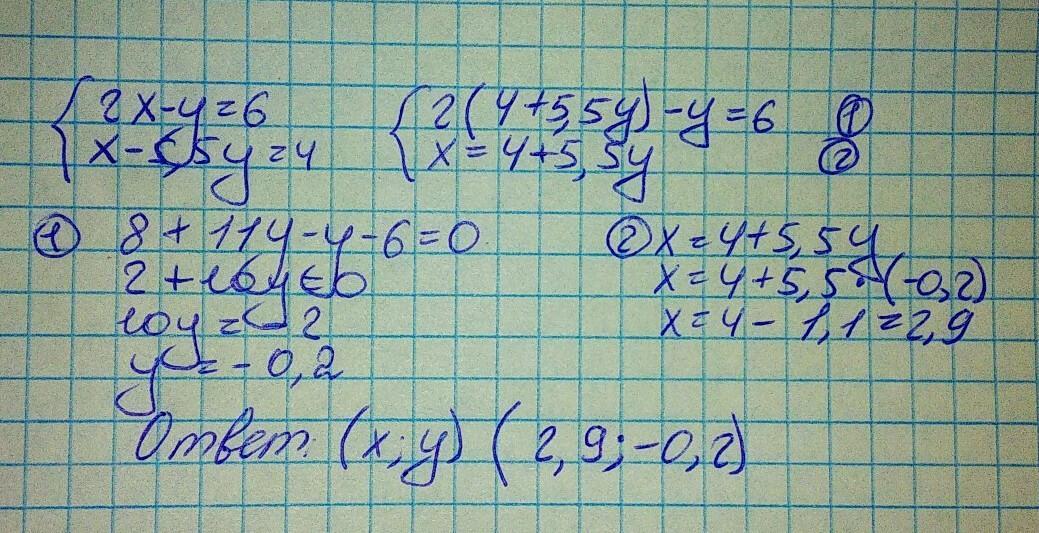 { 2x-y=6
x-5,5y=4
{ 2(4+5,5y)-y=6 ①
x=4+5,5y ②
① 8+11y-y-6=0
2+10y=0
10y=-2
y=-0,2
② x=4+5,5y
x=4+5,5·(-0,2)
x=4-1,1=2,9
Ответ. (x;y) (2,9;-0,2)